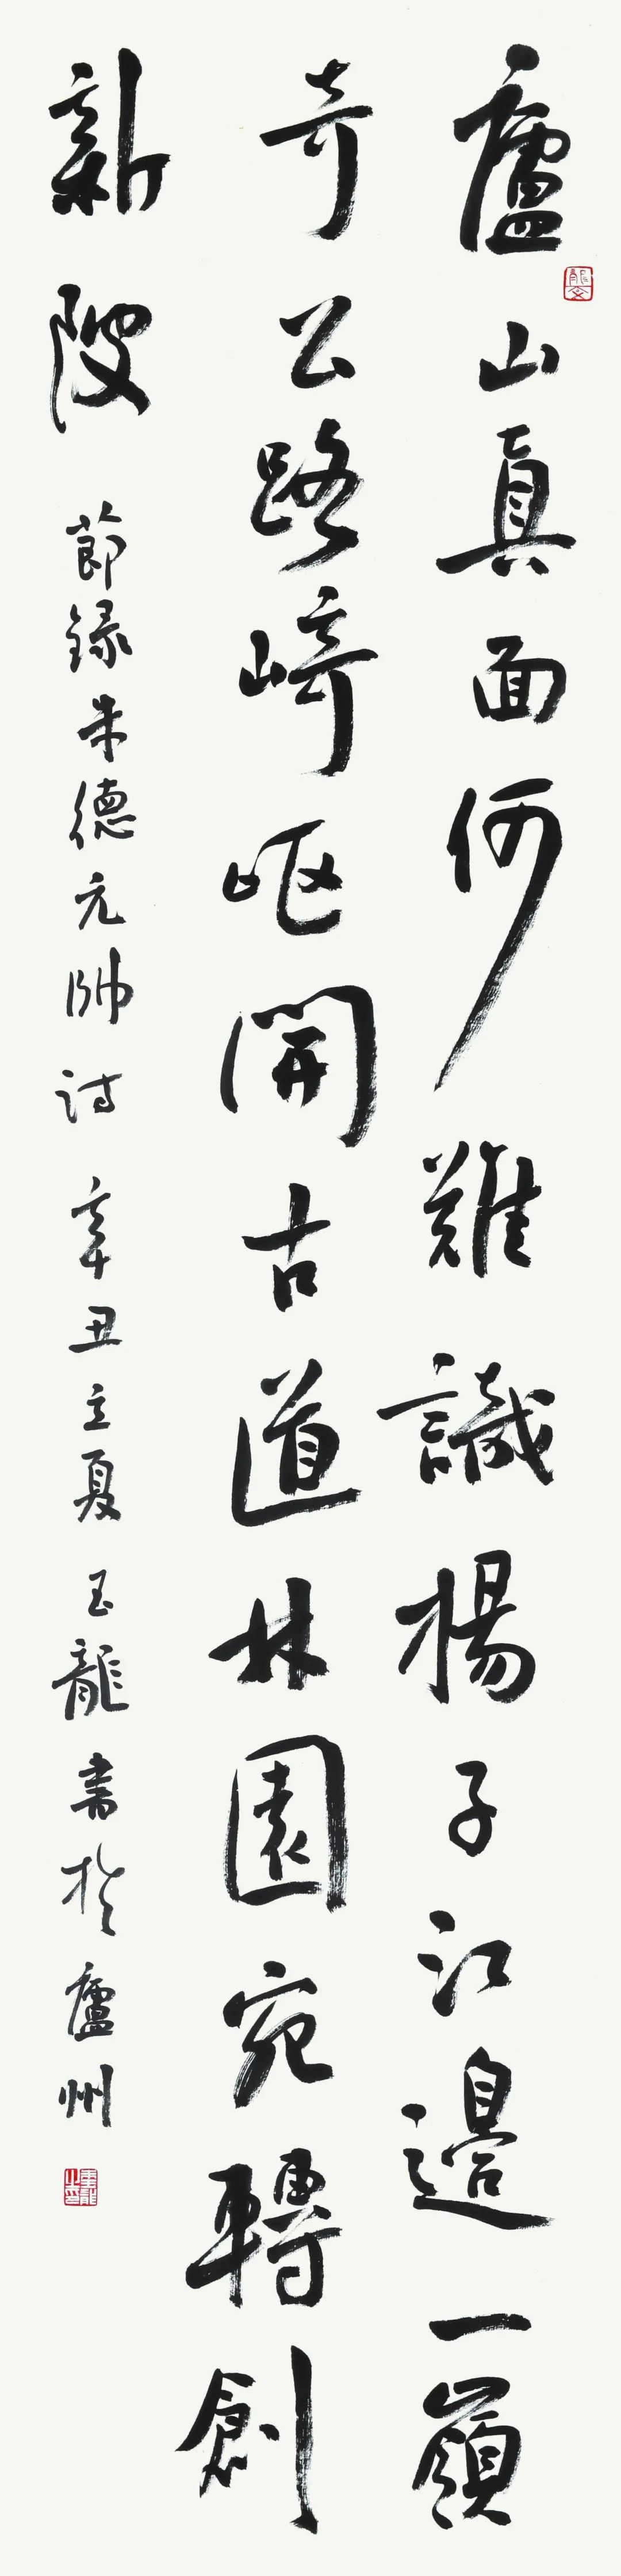 廬山真面何難識楊子江邊一嶺
奇公路崎岖開古道林園宛轉創
新陂
節録朱德元帥诗 辛丑立夏 玉龍書於廬州